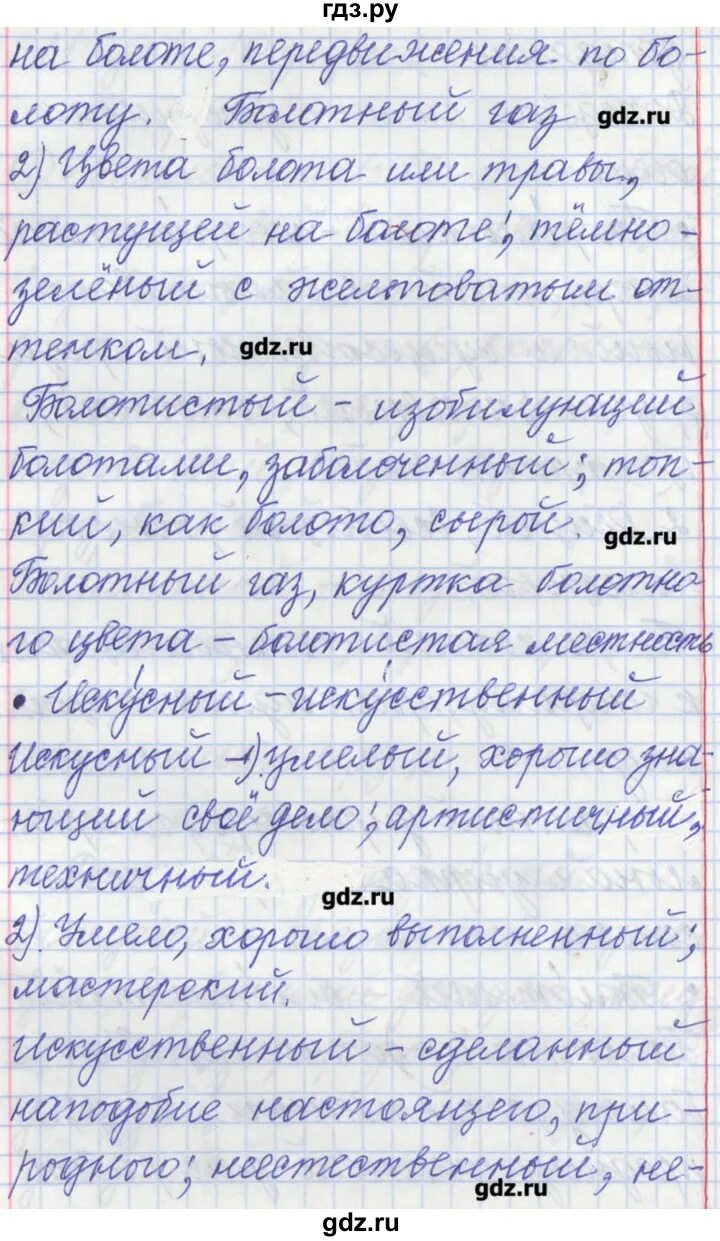 гдз.ру
на болоте, передвижения по бо-
лоту. Болотный газ gdz.ru
2) Цвета болота или травы,
растущей на болоте; тёмно-
зелёный с желтоватым от-
тенком. gdz.ru
Болотистый - изобилующий
болотами, заболоченный; топ-
кий, как болото, сырой. gdz.ru
Болотный газ, куртка болотно
го цвета - болотистая местность
• Иску́сный - иску́сственный
Искусный - 1) умелый, хорошо зна-
ющий своё дело; артистичный,
техничный. gdz.ru
2). Умело, хорошо выполненный;
мастерский.
Искусственный - сделанный
наподобие настоящего, при-
родного; неестественный, не-
gdz.ru
gdz.ru